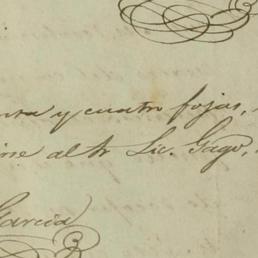 nta y cuatro fojas,
irse al Sr Lic. Gago,
Garcia